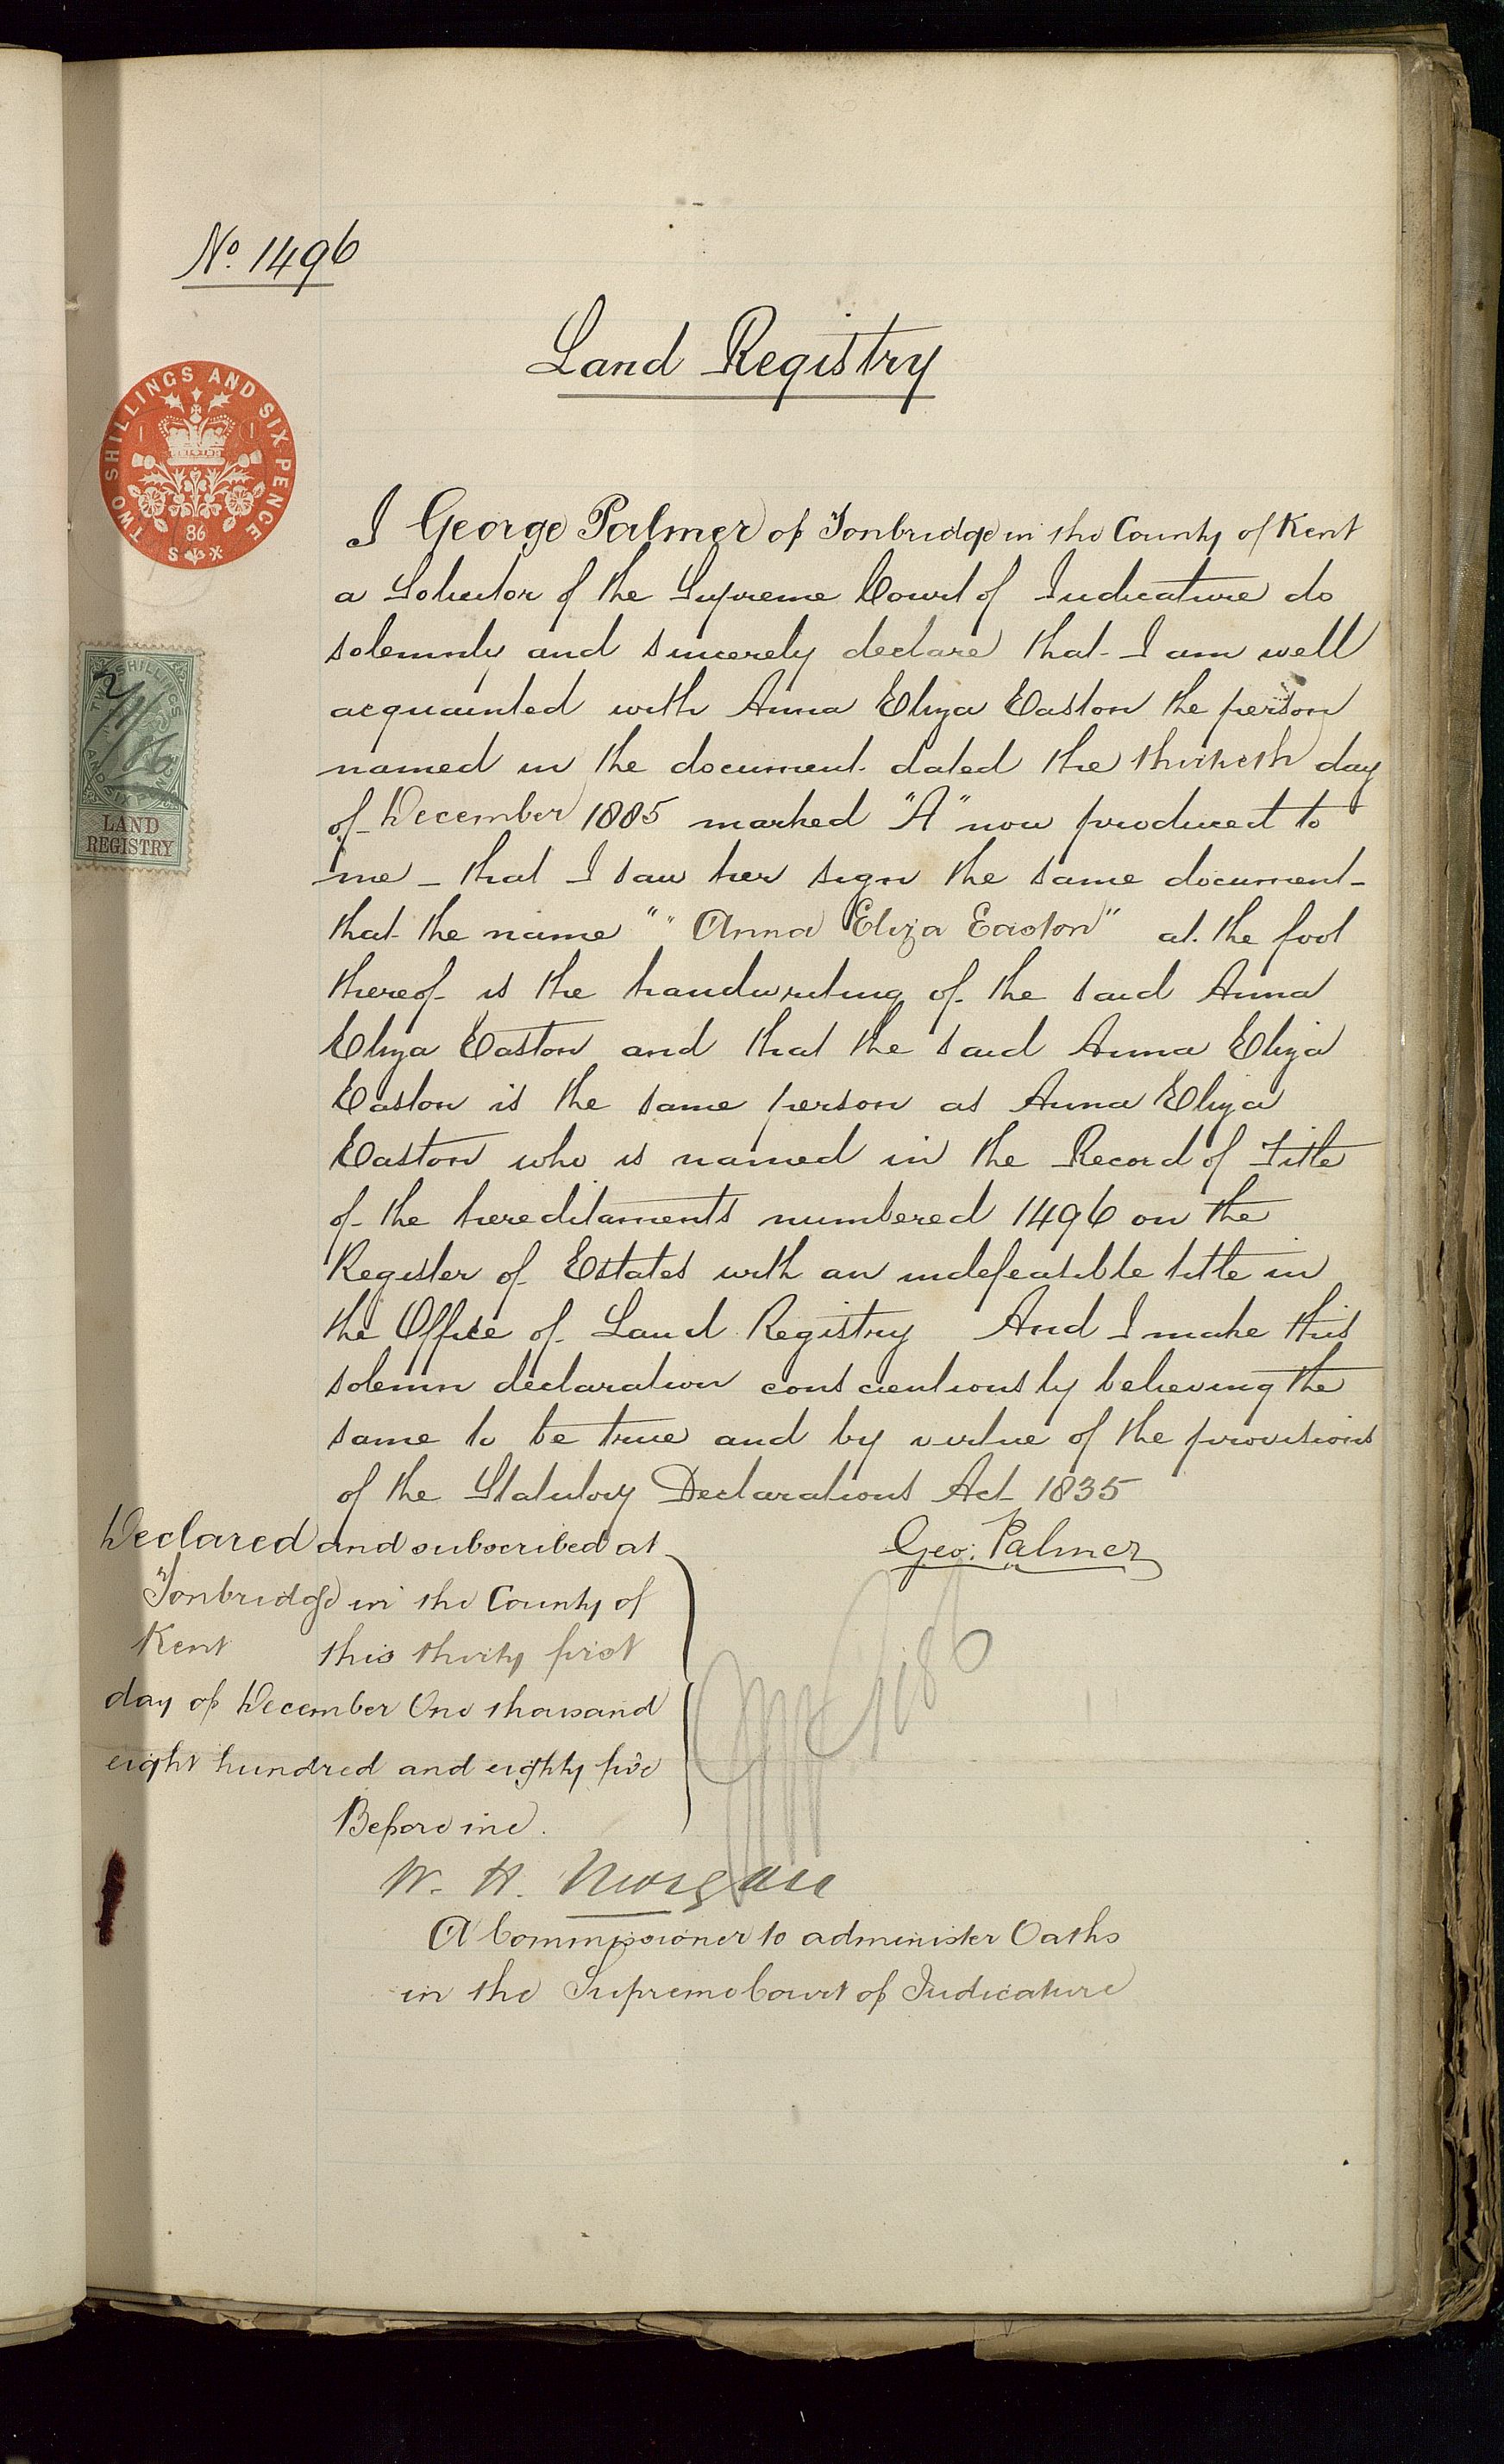 No. 1496
Land Registry
TWO SHILLINGS AND SIX PENCE
86
S
TWO SHILLINGS
AND SIX PENCE
2/1/86
LAND
REGISTRY
I George Palmer of Tonbridge in the County of Kent
a Solicitor of the Supreme Court of Judicature do
solemnly and sincerely declare that I am well
acquainted with Anna Eliza Easton the person
named in the document dated the thirtieth day
of December 1885 marked "A" now produced to
me – that I saw her sign the same document –
that the name "" Anna Eliza Easton" at the foot
thereof is the handwriting of the said Anna
Eliza Easton and that the said Anna Eliza
Easton is the same person as Anna Eliza
Easton who is named in the Record of Title
of the hereditaments numbered 1496 on the
Register of Estates with an indefeasible title in
the Office of Land Registry And I make this
solemn declaration conscientiously believing the
same to be true and by virtue of the provisions
of the Statutory Declarations Act 1835
Declared and subscribed at
Tonbridge in the County of
Kent this thirty first
day of December One thousand
eight hundred and eighty five
Before me.
Geo: Palmer
W. H. Morgan
A Commissioner to administer Oaths
in the Supreme Court of Judicature